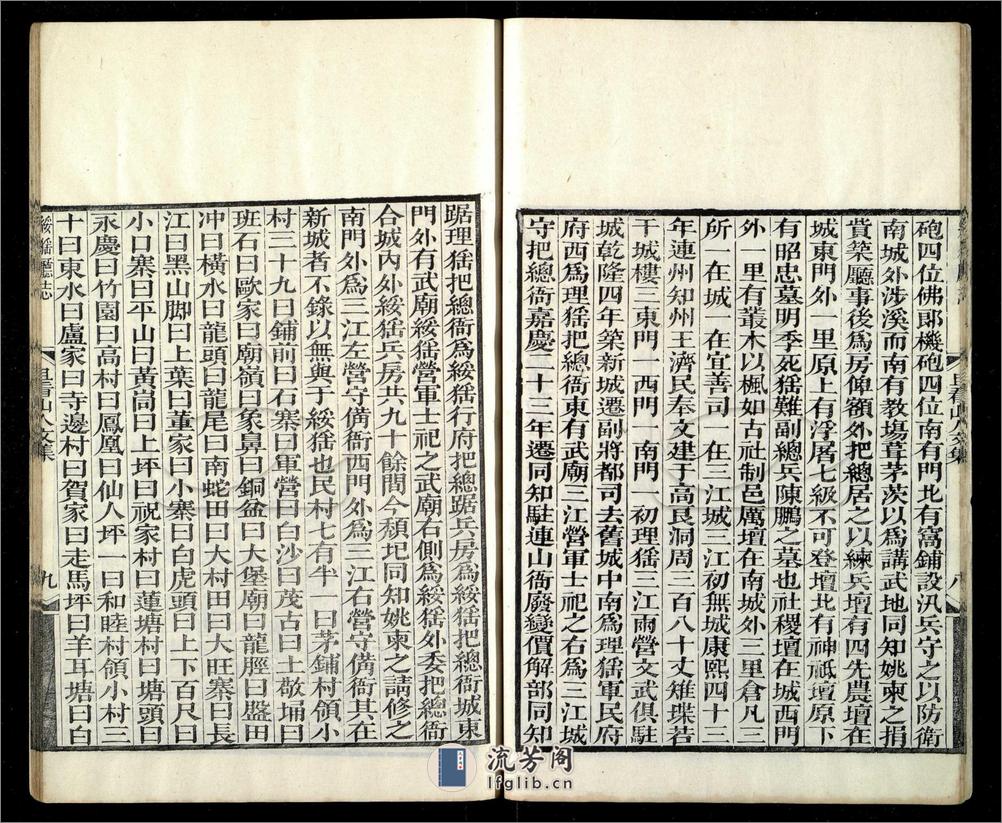 砲四位佛郎機砲四位南有門北有窩鋪設汛兵守之以防衛
南城外涉溪而南有教場葺茅茨以為講武地同知姚柬之捐
貲築廳事後為房傾額外把總居之以練兵壇有四先農壇在
城東門外一里原上有浮屠七級不可登壇北有神祗壇原下
有昭忠墓明季死猺難副總兵陳鵬之墓也社稷壇在城西門
外一里有叢木以楓如古社制邑厲壇在南城外三里倉凡三
所一在城一在宜善司一在三江城三江初無城康熙四十三
年連州知州王濟民奉文建于高良洞周二百八十丈雉堞若
干城樓三東門一西門一南門一初理猺三江兩營文武俱駐
城乾隆四年築新城遷副將都司去舊城中南為理猺軍民府
府西為理猺把總衙東有武廟三江營軍士祀之右為三江城
守把總衙嘉慶二十三年遷同知駐連山衙廢變價解部同知
踞理猺把總衙為綏猺行府把總踞兵房為綏猺把總衙城東
門外有武廟綏猺營軍士祀之武廟右側為綏猺外委把總衙
合城內外綏猺兵房共九十餘間今頹圯同知姚柬之請修之
南門外為三江左營守備衙西門外為三江右營守備衙其在
新城者不錄以無與于綏猺也民村七有半一曰茅鋪村領小
村二十九曰鋪前曰石寨曰軍營曰白沙曰茂古曰土敬埇曰
班石曰歐家曰廟嶺曰象鼻曰銅盆曰大堡廟曰龍脛曰盤田
冲曰橫水曰龍頭曰龍尾曰南蛇田曰大村田曰大旺寨曰長
江曰黑山脚曰上葉曰董家曰小寨曰白虎頭曰上下百尺曰
小口寨曰平山曰黃崗曰上坪曰祝家村曰蓮塘村曰塘頭曰
永慶曰竹園曰高村曰鳳凰曰仙人坪一曰和睦村領小村三
十曰東水曰盧家曰寺邊村曰賀家曰走馬坪曰羊耳塘曰白
綏猺廳志
且看山人文集
九
流芳阁
lfglib.cn